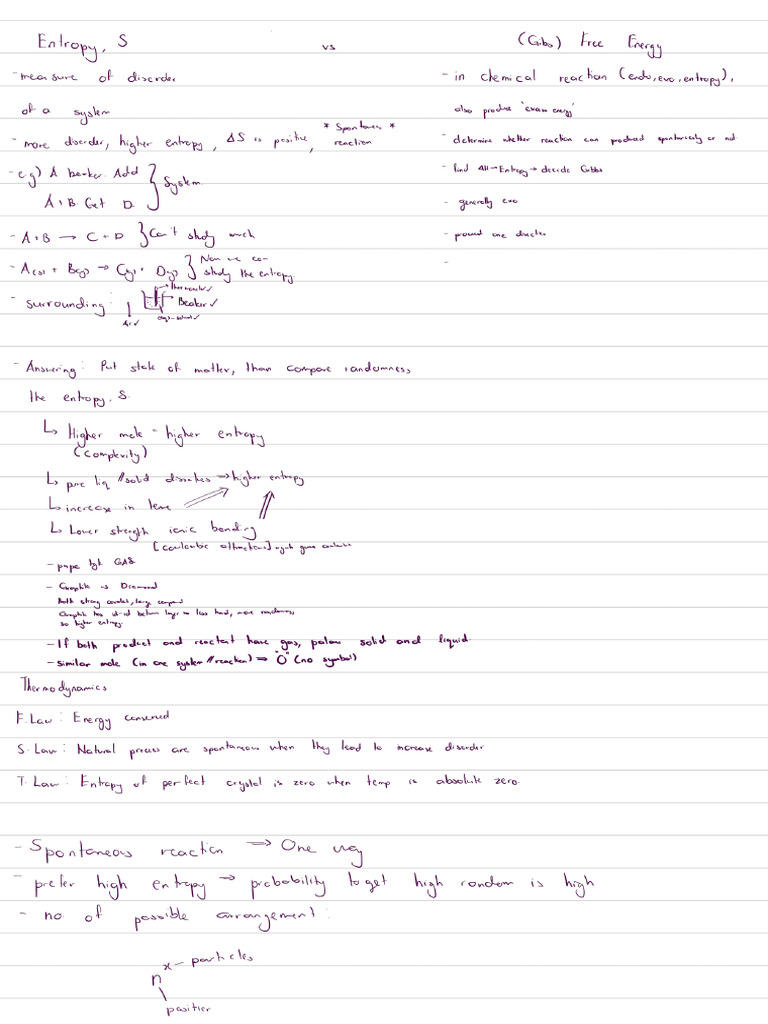 Entropy, S vs (Gibs) Free Energy
- measure of disorder
of a system
- more disorder, higher entropy, ΔS is positive, * Spontaneous * reaction
- e.g) A beaker. Add
A + B. Get D. } System
- A + B → C + D } Can't study much
- A(s) + B(g) → C(g) + D(g) } Now we can study the entropy
- surrounding:
Beaker ✓
Air ✓
- in chemical reaction (endo, exo, entropy),
also produce
- determine whether reaction can proceed spontaneously or not
- find ΔH → Entropy → decide Gibbs
- generally exo
- one direction
-
- Answering: Put state of matter, than compare randomness,
the entropy, S.
↳ Higher mole = higher entropy
(complexity)
↳ pure liq // solid dissolves → higher entropy
↳ increase in
↳ Lower strength ionic bonding
- GAS
- Graphite vs Diamond
Both strong covalent,
Graphite has between layer less hard, more randomness,
so higher entropy.
- If both product and reactant have gas, solid and liquid
- similar mole (in one system // reaction) ⇒ "O" (no symbol)
Thermodynamics
F. Law: Energy conserved
S. Law: Natural process are spontaneous when they lead to increase disorder
T. Law: Entropy of perfect crystal is zero when temp is absolute zero.
- Spontaneous reaction ⇒ One way
- prefer high entropy → probability to get high random is high
- no of possible arrangement:
x - particles
n
position